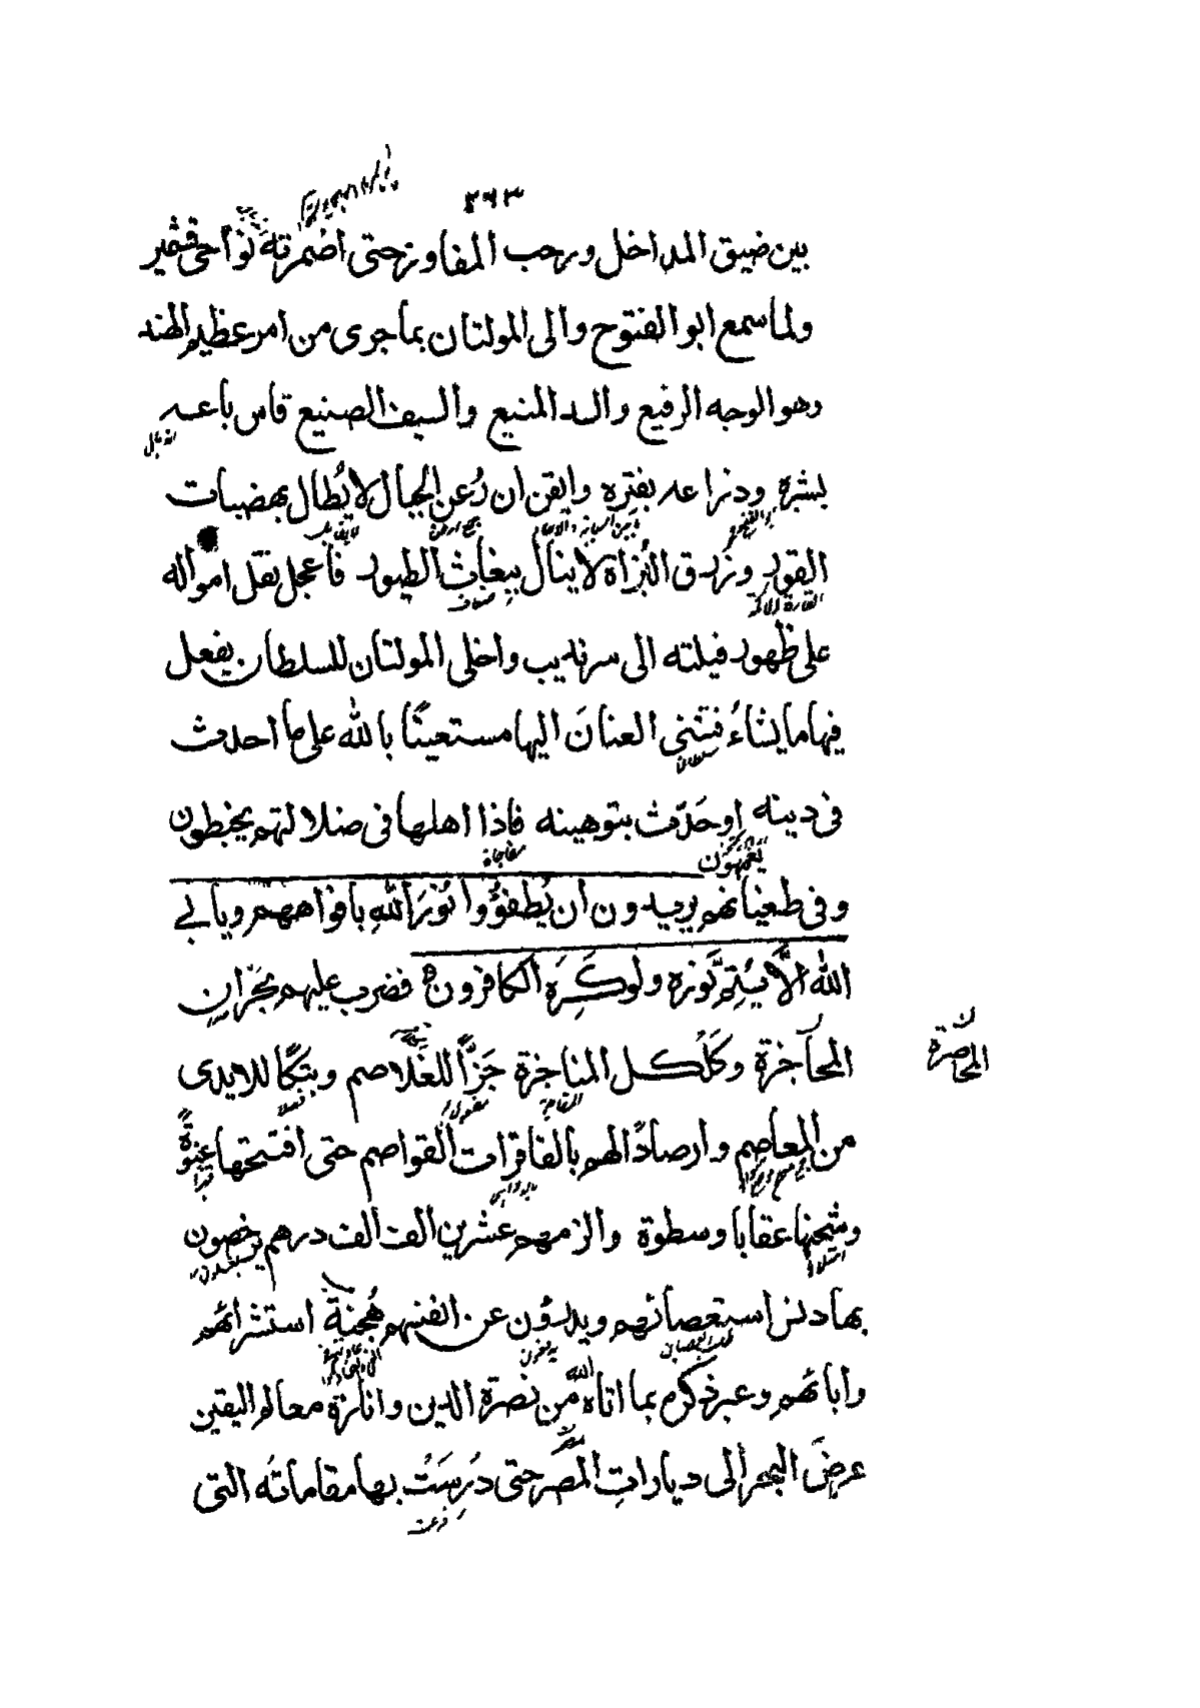 ٢٦٣
بين ضيق المداخل ورحب المفاوز حتى اضمرته نواحى قشمير
ولما سمع ابو الفتوح والى المولتان بما جرى من امر عظيم الهند
وهو الوجه الرفيع والسد المنيع والسيف الصنيع قاس باعه
بشبره وذراعه بفتره وايقن ان رُعن الجبال لا يُطال بهضبات
القور وزرق البُزاة لا ينال ببغاث الطيور فاعجل بنقل امواله
على ظهور فيلته الى سرنديب واخلى المولتان للسلطان يفعل
فيها ما يشاءُ فثنى العنانَ اليها مستعينًا بالله على ما احدث
فى دينه اوحَدّث بتوهينه فاذا اهلها فى ضلالتهم يخبطون
يعمهُون
وفى طغيانهم يريدون ان يُطفؤُوا نُورَ اللهِ بافواههم ويابى
الله الَّا يُتِمَّ نوره ولوكَرَه الكافرون فضرب عليهم بجَرانِ
المحاجزة وكَلكل المناجزة جَزًّا للغَلاصم وبَتكًا للايدى
المحاصرة
من المعاصم وارصادًا لهم بالفاقرات القواصم حتى افتتحها عنوةً
وشحنها عقابا وسطوة والزمهم عشرين الف الف درهم يرخصون
بها دنس استعصائهم ويدرؤن عن انفسهم هُجنةَ استشرائهم
وابائهم وعبر ذكرُه بما اتاه الله من نصرة الدين وانارة معالم اليقين
عرضَ البحر الى دياراتِ المصر حتى دُرِسَتْ بها مقاماتُه التى